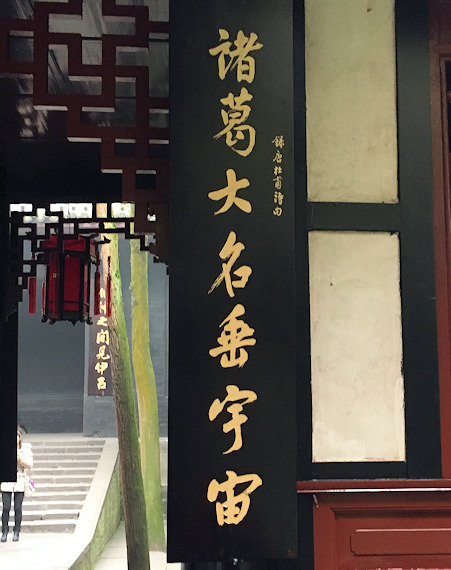 諸葛大名垂宇宙
錄唐杜甫詩句
之間見伊呂